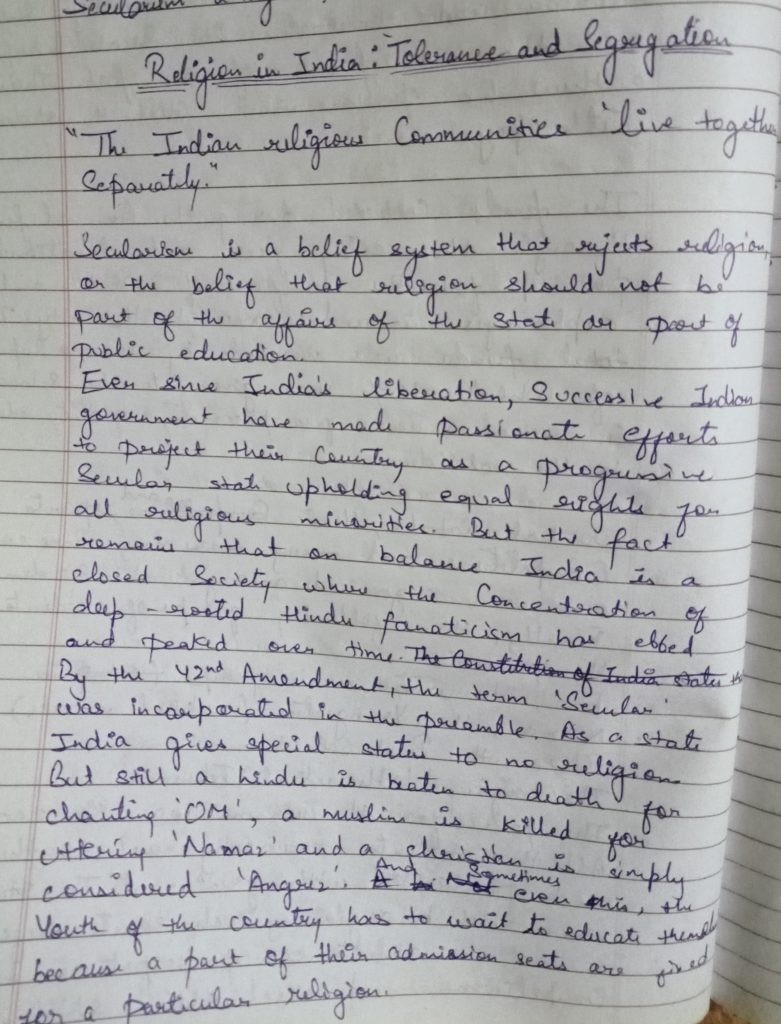 Secularism
Religion in India : Tolerance and Segregation
"The Indian religious Communities 'live together
Separately."
Secularism is a belief system that rejects religion,
or the belief that religion should not be
part of the affairs of the state or part of
public education.
Ever since India's liberation, Successive Indian
government have made passionate efforts
to project their Country as a progressive
Secular state upholding equal rights for
all religious minorities. But the fact
remains that on balance India is a
closed Society where the Concentration of
deep-rooted Hindu fanaticism has ebbed
and peaked over time. The Constitution of India states th
By the 42nd Amendment, the term 'Secular'
was incorporated in the preamble. As a state
India gives special status to no religion
But still a hindu is beaten to death for
chanting 'OM', a muslim is killed for
uttering 'Namaz' and a christian is simply
considered 'Angrez'. And Sometimes even this, the
Youth of the country has to wait to educate themsel
because a part of their admission seats are fixed
for a particular religion.